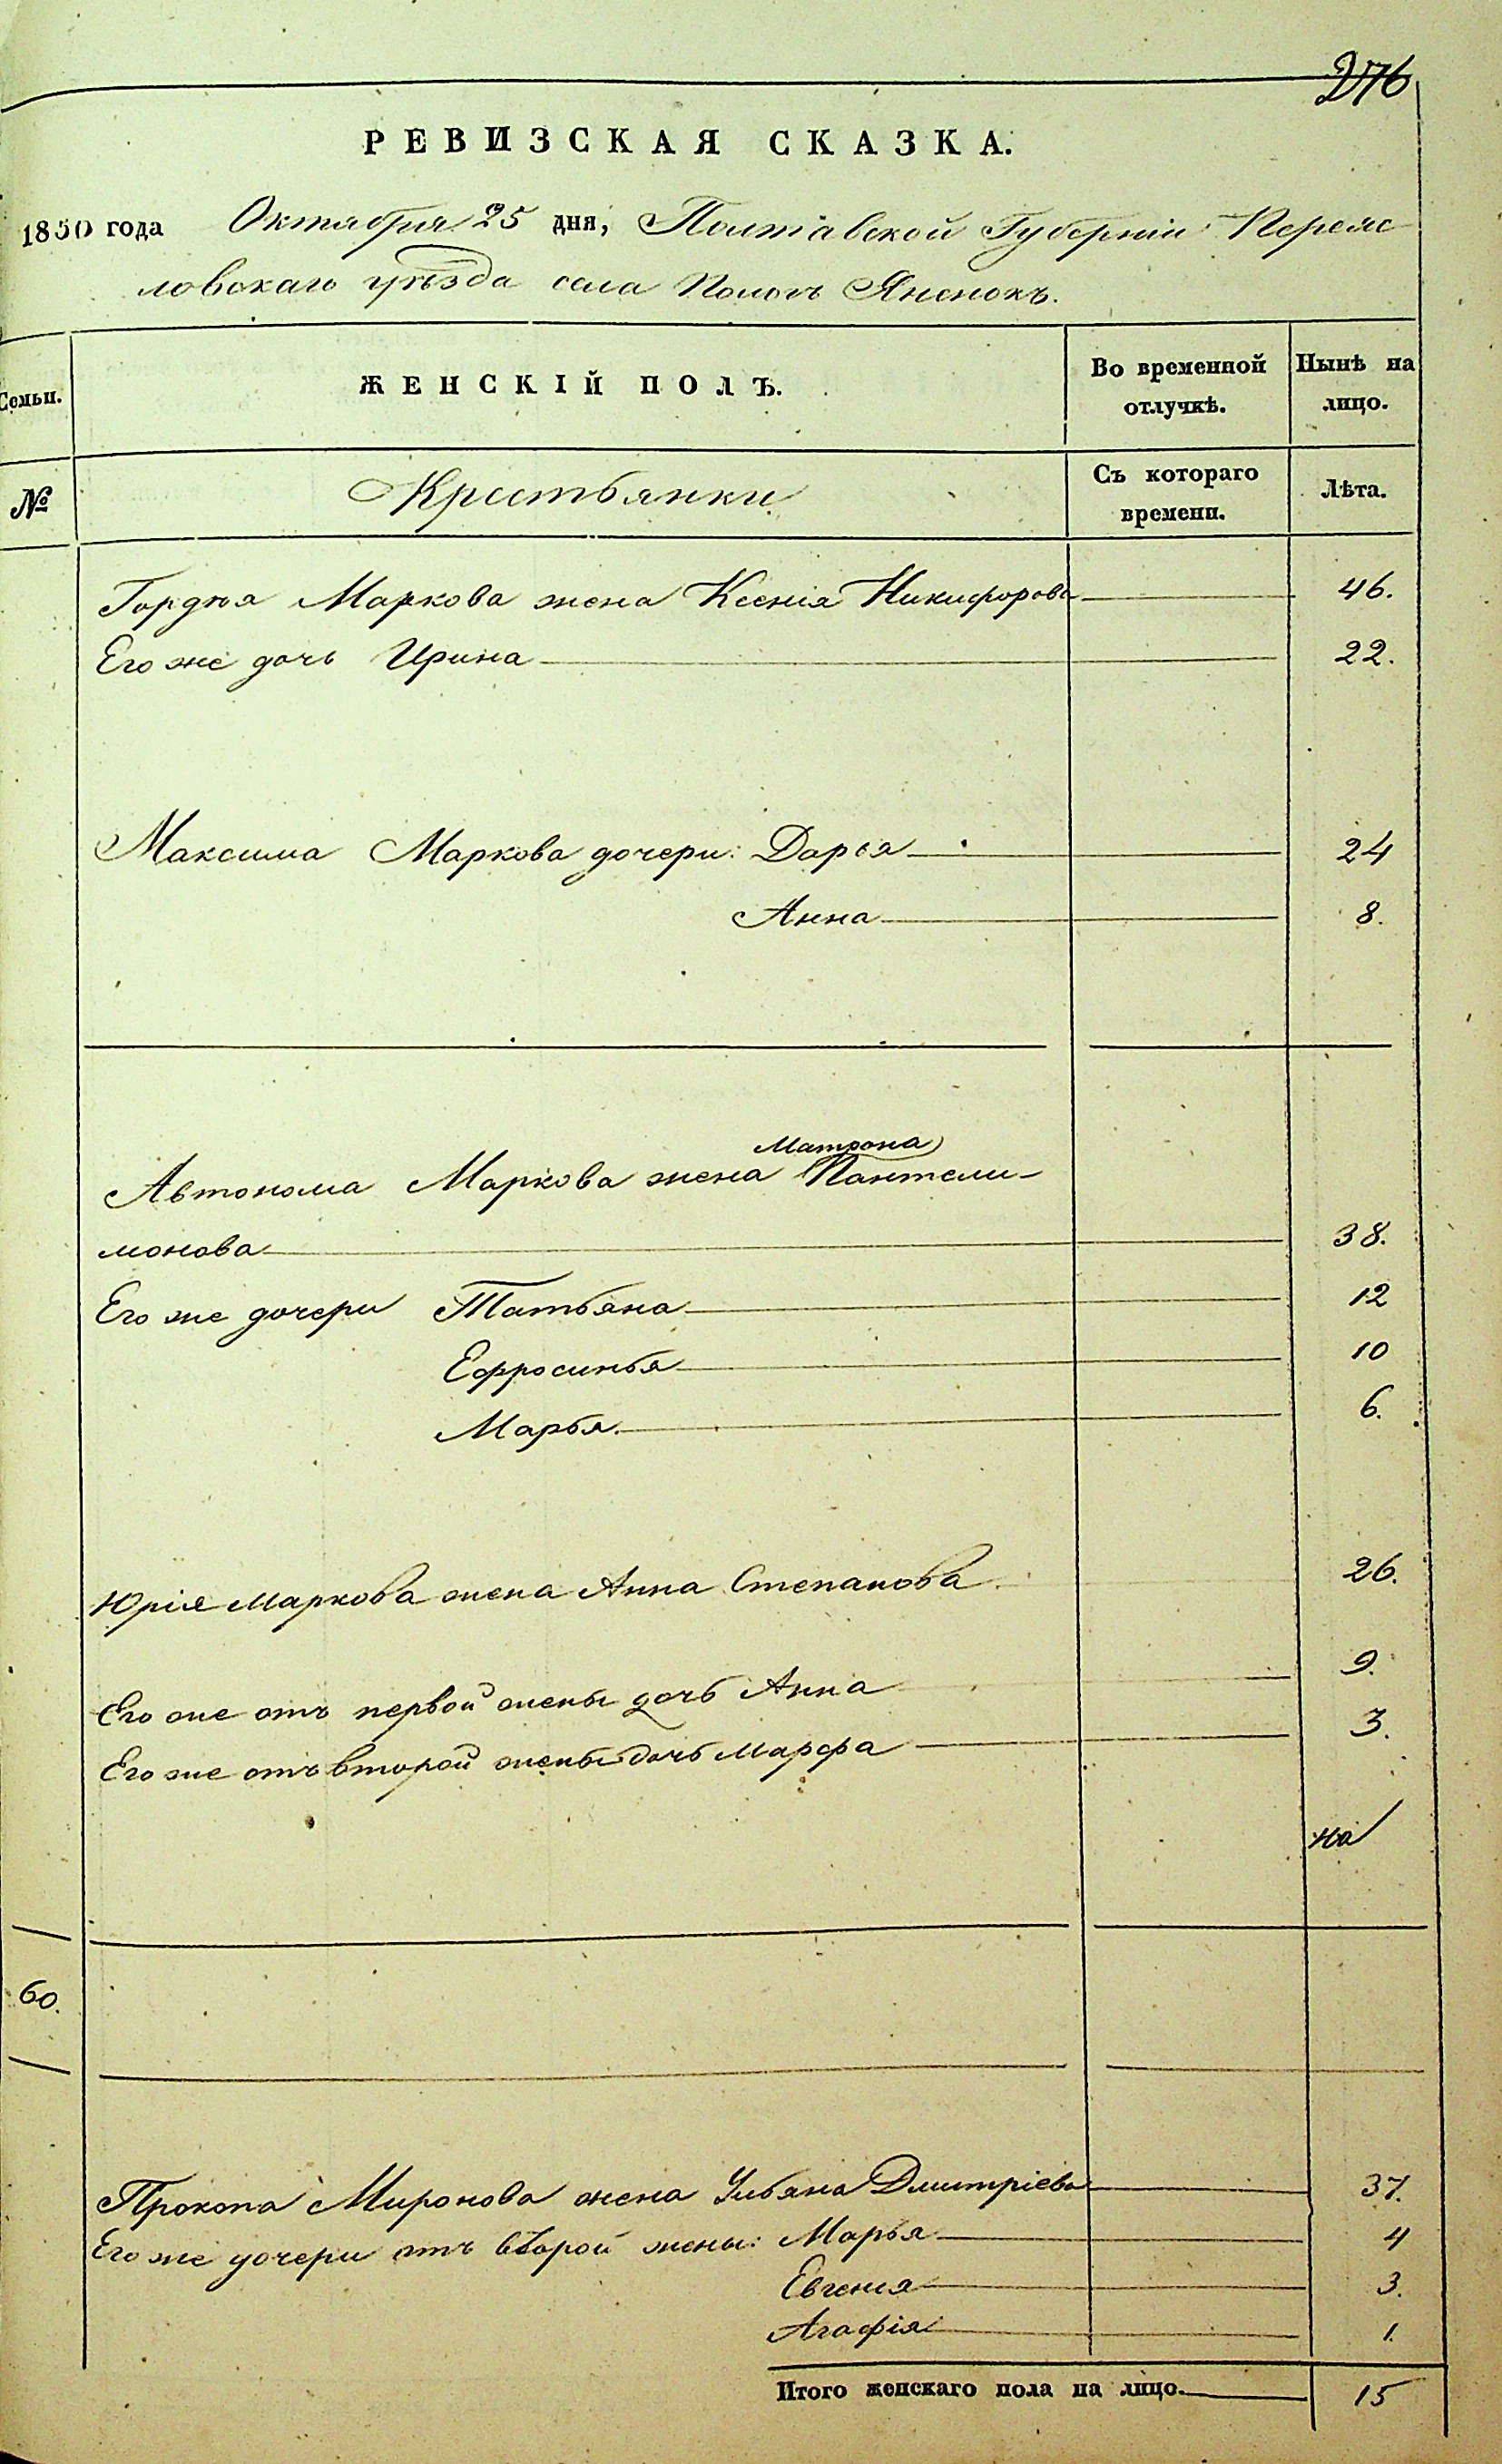 276
РЕВИЗСКАЯ СКАЗКА.
1850 года Октября 25 дня, Полтавской Губерніи Переяс
ловскаго уѣзда села Пологъ Яненокъ.
Семьи.
ЖЕНСКІЙ ПОЛЪ.
Во временной отлучкѣ.
Нынѣ на лицо.
№
Крестьянки
Съ котораго времени.
Лѣта.
Гордѣя Маркова жена Ксенія Никифорова 46.
Его же дочь Ирина 22.
Максима Маркова дочери: Дарья 24
Анна 8.
Матрона
Автонома Маркова жена Пантели-
монова 38.
Его же дочери Татьяна 12
Ефросинья 10
Марья 6.
Юрія Маркова жена Анна Степанова 26.
Его же отъ первой жены дочь Анна 9.
Его же отъ второй жены дочь Марфа 3.
на
60.
Прокопа Миронова жена Ульяна Дмитріева 37.
Его же дочери отъ второй жены: Марья 4
Евгенія 3.
Агафія 1.
Итого женскаго пола на лицо. 15